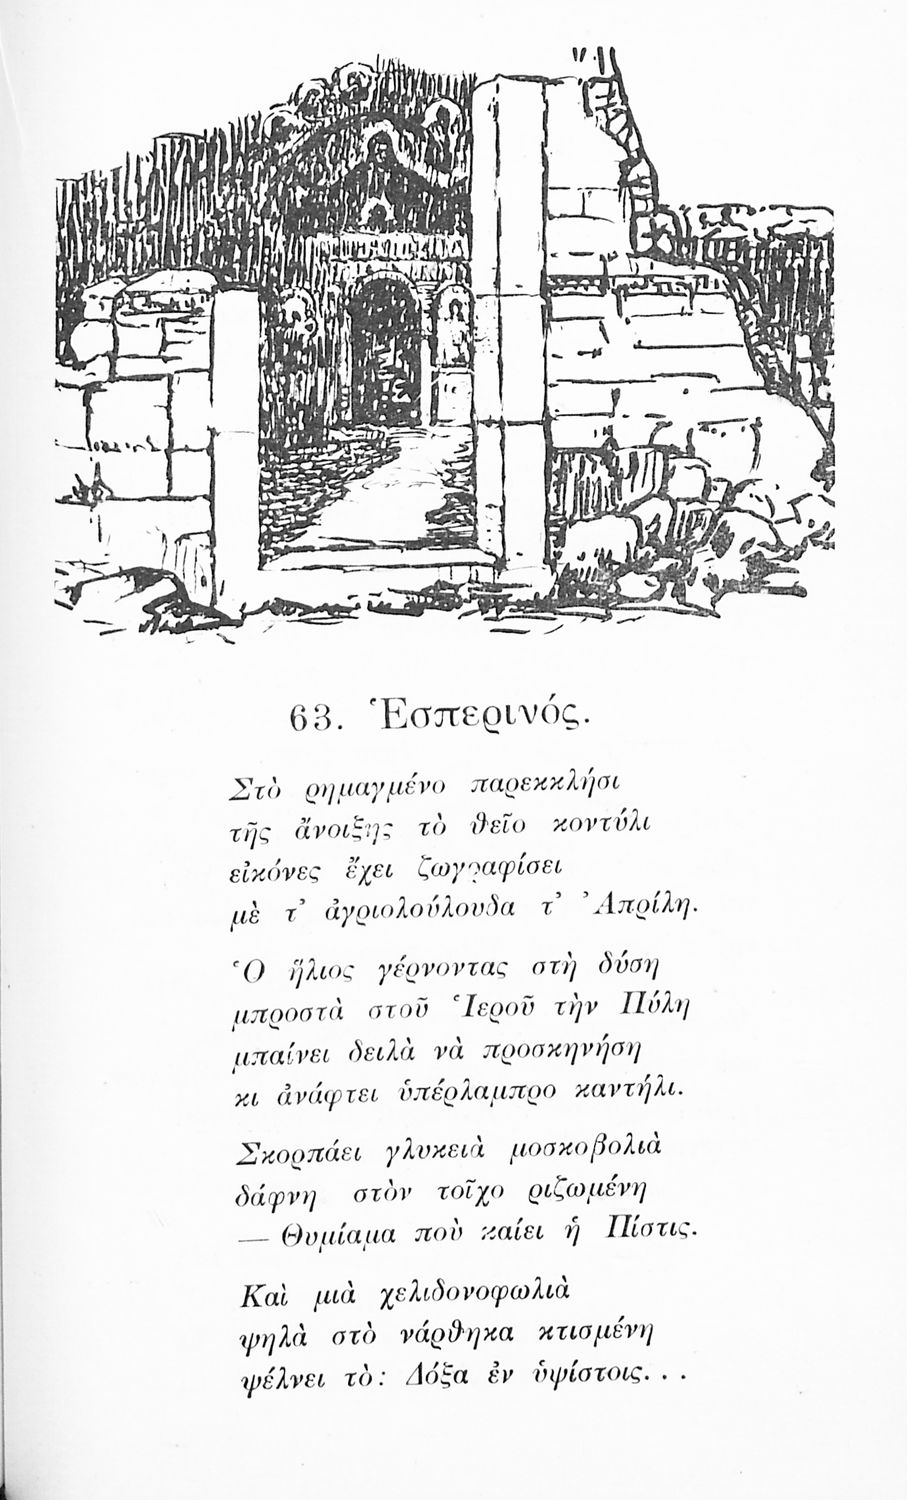 63. Ἑσπερινός.
Στὸ ρημαγμένο παρεκκλήσι
τῆς ἄνοιξης τὸ θεῖο κοντύλι
εἰκόνες ἔχει ζωγραφίσει
μὲ τ’ ἀγριολούλουδα τ’ Ἀπρίλη.
Ὁ ἥλιος γέρνοντας στὴ δύση
μπροστὰ στοῦ Ἱεροῦ τὴν Πύλη
μπαίνει δειλὰ νὰ προσκηνήση
κι ἀνάφτει ὑπέρλαμπρο καντήλι.
Σκορπάει γλυκειὰ μοσκοβολιὰ
δάφνη στὸν τοῖχο ριζωμένη
— Θυμίαμα ποὺ καίει ἡ Πίστις.
Καὶ μιὰ χελιδονοφωλιὰ
ψηλὰ στὸ νάρθηκα κτισμένη
ψέλνει τὸ: Δόξα ἐν ὑψίστοις. . .